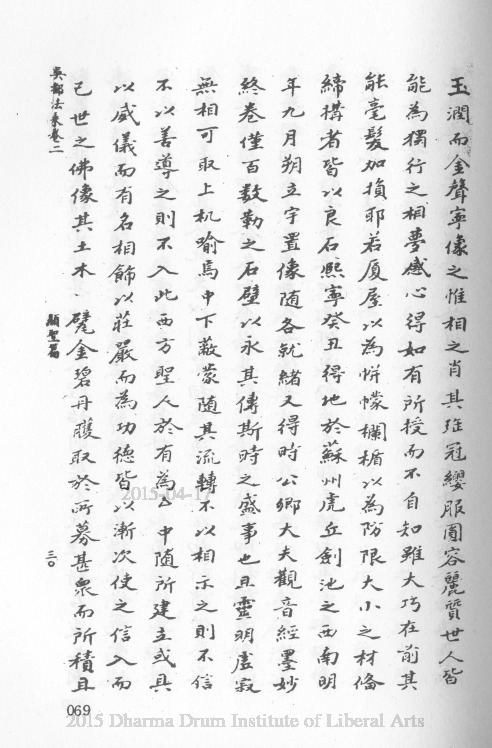 玉潤而金聲寧像之惟相之肖其珄冠纓服圓容麗質世人皆
能為獨行之相夢感心得如有所授而不自知雖大巧在前其
能毫髮加損耶若厦屋以為帡幪欄楯以為防限大小之材俻
締構者皆以良石熙寧癸丑得地於蘇州虎丘劍池之西南明
年九月朔立宇置像随各就緒又得時公卿大夫觀音經墨妙
終卷僅百数勒之石壁以永其傳斯時之盛事也且靈明虚寂
無相可取上机喻焉中下蔽蒙随其流轉不以相示之則不信
不以善導之則不入此西方聖人於有為中随所建立或具
以威儀而有名相飾以莊嚴而為功德皆以漸次使之信入而
已世之佛像其土木、甓金碧丹雘取於所募甚衆而所積且
吳都法乘卷二
顯聖篇
三〇
069
2015-04-17
2015 Dharma Drum Institute of Liberal Arts